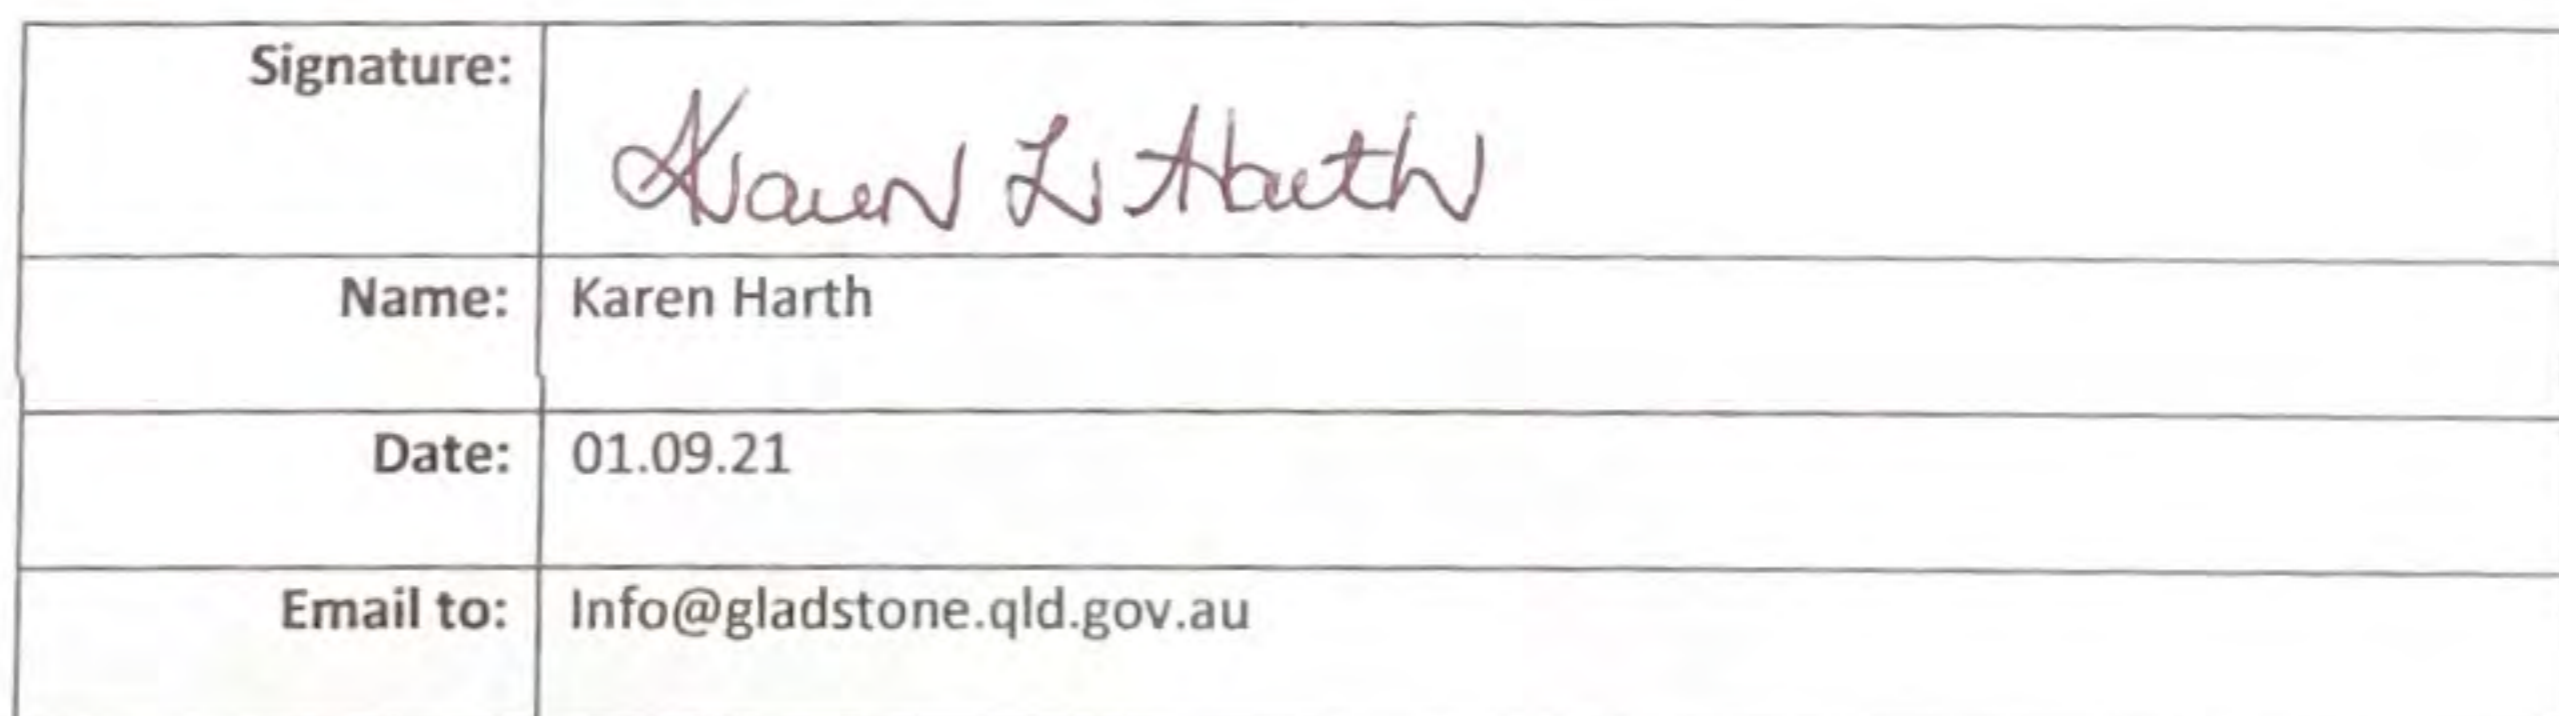 Signature: Karen L Harth
Name: Karen Harth
Date: 01.09.21
Email to: Info@gladstone.qld.gov.au